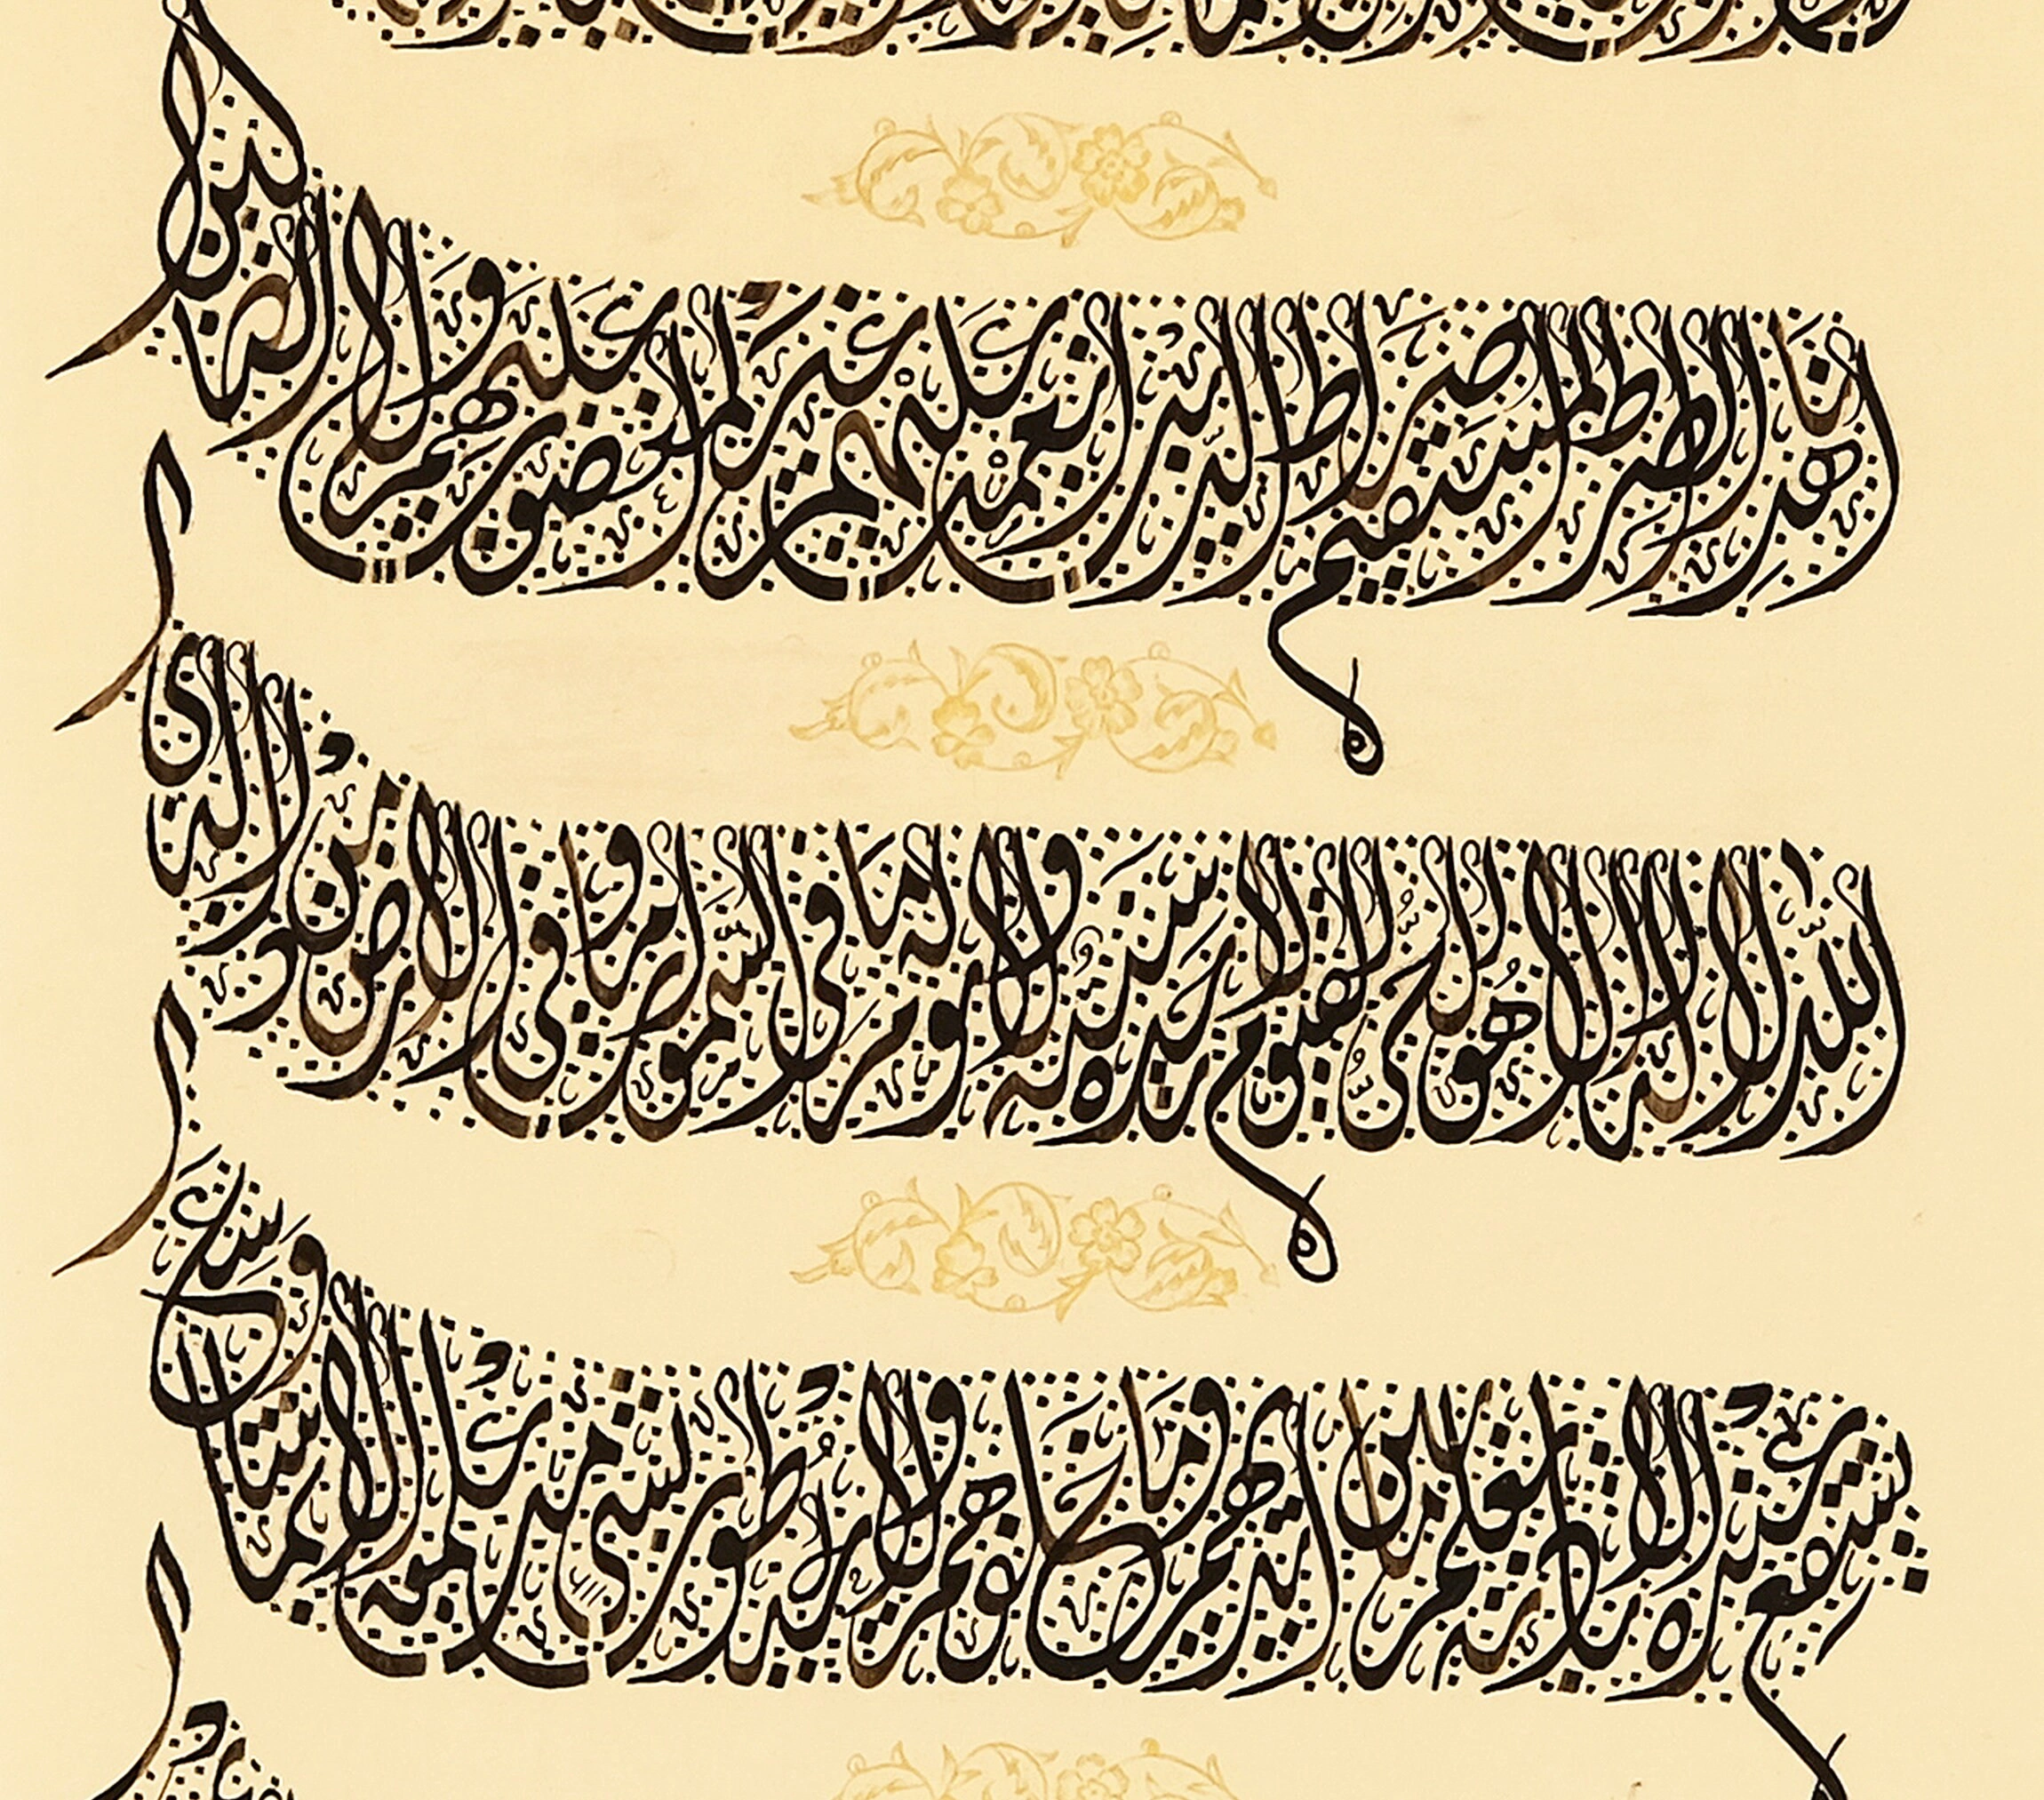 اهدنا الصراط المستقيم صراط الذين انعمت عليهم غير المغضوب عليهم ولا الضالين
الله لا اله الا هو الحي القيوم لا تاخذه سنة ولا نوم له ما في السموات وما في الارض من ذا الذي
يشفع عنده الا باذنه يعلم ما بين ايديهم وما خلفهم ولا يحيطون بشئ من علمه الا بما شاء وسع